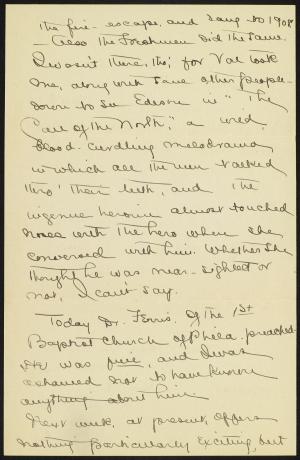 the fire-escape, and sang to 1908
— Also the Freshmen did the same.
I wasn't there, tho; for Val took
me, along with some other people
down to see Edeson in "The
Call of the North," a wild,
blood-curdling melodrama
in which all the men talked
thro' their teeth, and the
ingenue heroine almost touched
noses with the hero when she
conversed with him. Whether she
thought he was near-sighted or
not, I can't say.
Today Dr. Ferris, of the 1st
Baptist Church of Phila. preached.
He was fine, and I was
ashamed not to have known
anything about him.
Next week, at present, offers
nothing particularly exciting, but